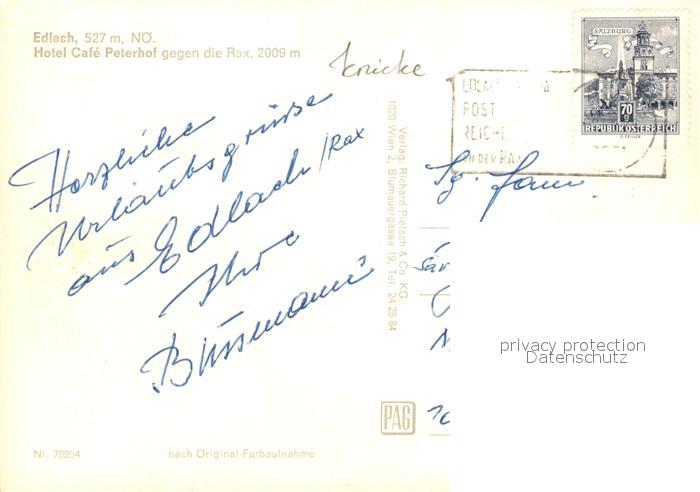 Edlach, 527 m, NÖ.
Hotel Café Peterhof gegen die Rax, 2009 m
Knicke
SALZBURG
70
g
REPUBLIK ÖSTERREICH
POST
REICHE
AN DER RAX
Herzliche
Urlaubsgrüsse
aus Edlach/Rax
Ihre
Bussmann's
Verlag: Richard Pietsch & Co. KG.
1020 Wien 2, Blumauergasse 19, Tel. 24 25 84
Fam.
privacy protection
Datenschutz
PAG
Nr. 78954
nach Original-Farbaufnahme